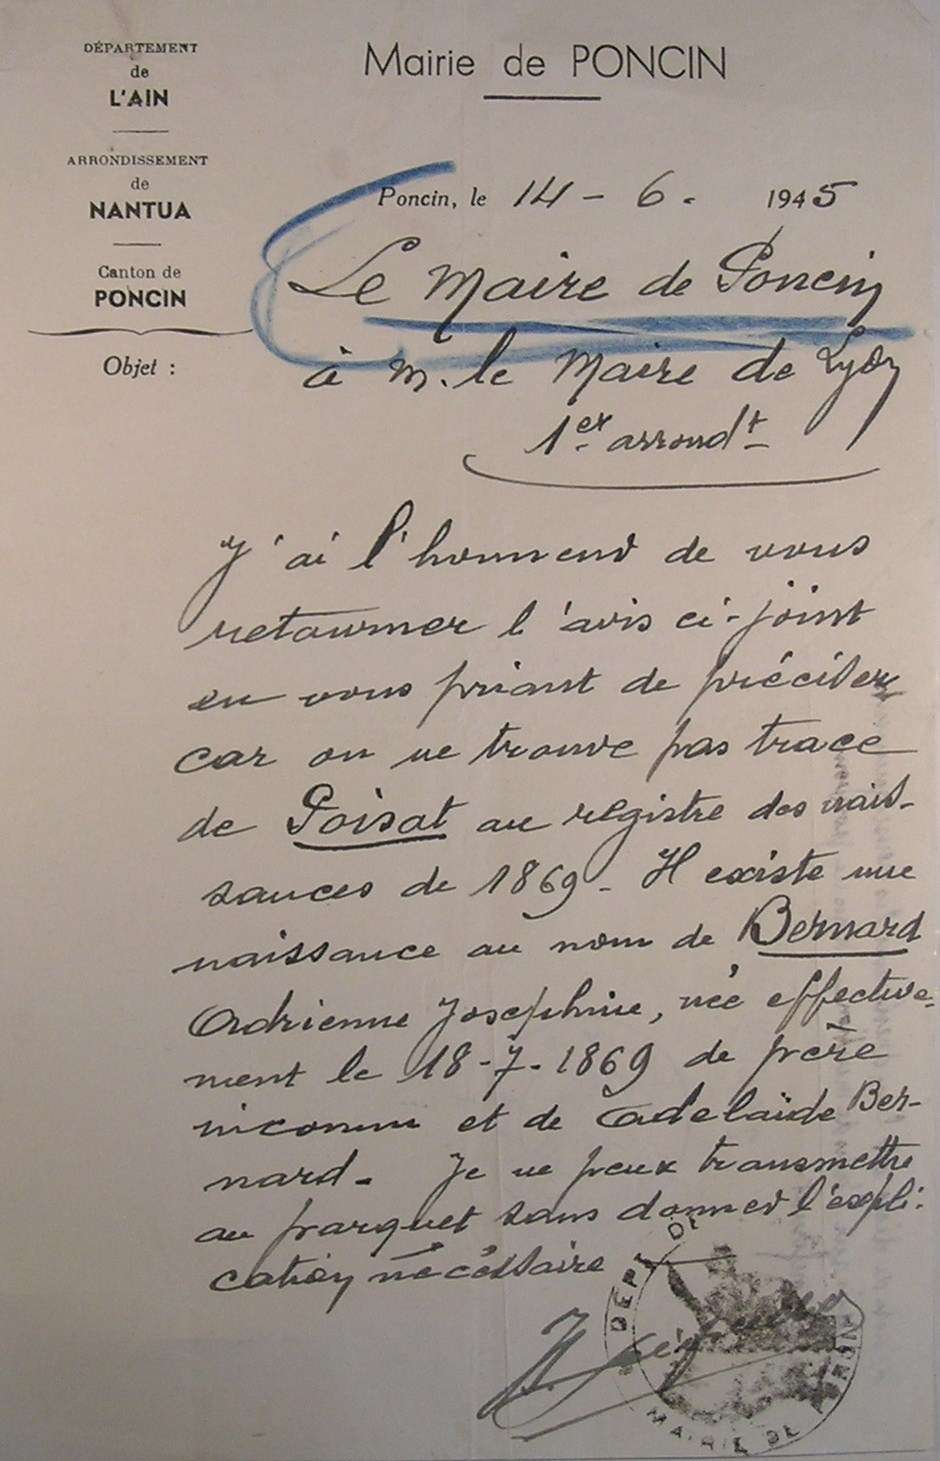 DÉPARTEMENT
de
L'AIN
ARRONDISSEMENT
de
NANTUA
Canton de
PONCIN
Objet :
Mairie de PONCIN
Poncin, le 14 - 6. 1945
Le Maire de Poncin
à M. le Maire de Lyon
1er arrondt
J'ai l'honneur de vous
retourner l'avis ci-joint
en vous priant de préciser
car on ne trouve pas trace
de Poisat au registre des nais-
sances de 1869 - Il existe une
naissance au nom de Bernard
Adrienne Josephine, née effective-
ment le 18-7-1869 de père
inconnu et de Adelaïde Ber-
nard. Je ne peux transmettre
au parquet sans donner l'expli-
cation nécessaire
DEPT DE
MAIRIE DE PONCIN